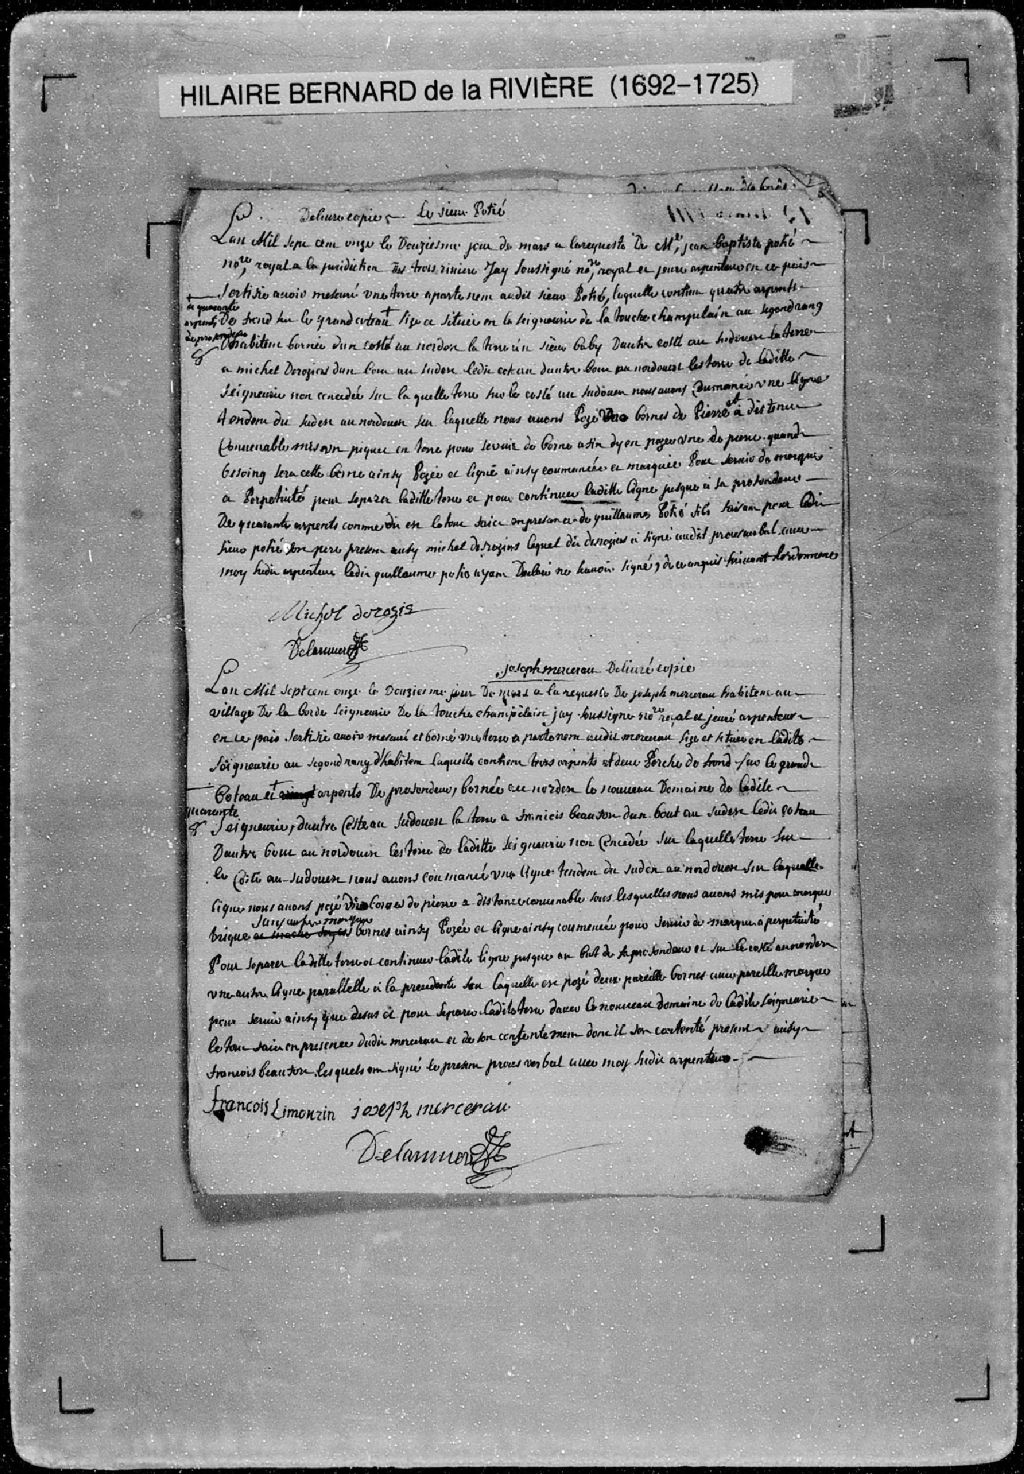 HILAIRE BERNARD de la RIVIÈRE (1692-1725)
Deliuré copie Le sieur Potié
Lan Mil Sept cem onze le Douziesme jour de mars a la requeste De Mre jean baptiste potié
nore royal a la juridiction des trois riviere Jay soussigné nore royal et jeuré arpenteur en ce païs
Sertifie auoir mesuré vne terre apartenem audit sieur Potié, laquelle contien quatre arpents
+ de quarante arpents de profondeur
De frond sur le grand coteau size et situeé en la seigneurie de la touche champlain au segond rang
Dhabitem bornée dun costé au nordest la terre du sieur baby Dautre costé au sudouest la terre
a michel Derosiers dun bout au sudest ledit coteau dautre bout au nordouest les terre de laditte
seigneurie non concedée sur laquelle terre sur le costé au sudouest nous auons coumancé vne ligne
tendem du sudest au nordouest sur laquelle nous auons Pozé bornes de Pierre a distence
Conuenable mis vn piquet en terre pour seruir de borne afin dy en pozer vne de pierre quand
besoing sera cette borne ainsy Pozée et ligne ainsy coumancée et marquée Pour seruir de marque
a Perpetuité pour separer laditte terre et pour continuer laditte ligne jusque a sa profondeur
De quarante arpents comme dit est le tout fait en presance de guillaume Potié fils faisan pour ledit
sieur potié son pere present ausy michel desrosiers lequel dit desrosiers a signé audit procesuerbal auec
moy sudit arpenteur ledit guillaume potié ayant Declaré ne sauoir signé, de ce enquis suiuant lordonnance
Michel derosie
Delariuiere
joseph mercerau Deliuré copie
Lan Mil Septcem onze le Douziesme jour De mars a la requeste De joseph mercerau habitem au
village De la borde seigneurie De la touche champlain jay soussigné nore royal et jeuré arpenteur
en ce païs sertifie auoir mesuré et borné vne terre apartenem audit mercerau size et situeé en ladite
seigneurie au segond rang d'habitem laquelle contiem trois arpents et deux Perche de frond sur le grand
Coteau et arpents De profondeur, bornée au nordest le nouveau Domaine de ladite
quarante
Seigneurie, dautre costé au sudouest la terre a francois beaudon dun bout au sudest ledit coteau
Dautre bout au nordouest les terre de laditte seigneurie non concedée sur laquelle terre sur
le coste au sudouest nous auons coumancé vne ligne tendem du sudest au nordouest sur laquelle
ligne nous auons pozé bornes de pierre a distance conuenable sous lesquelles nous auons mis pour marque
brique bornes ainsy Pozée et ligne ainsy coumencée pour seruir de marque a perpetuité
Pour separer laditte terre et continuer ladite ligne jusque au but de sa profondeur et sur le costé au nordest
vne autre ligne parallelle a la precedente sur laquelle est pozé deux pareille bornes auec pareille marque
pour seruir ainsy que desus et pour separer ladite terre dauec le nouveau Domaine de ladite seigneurie
le tout fait en presence dudit mercerau et de son contentement dont il son contenté present ausy
francois beaudon lesquels ont signé le present proces verbal auec moy sudit arpenteur
francois Limouzin joseph mercerau
Delariuiere